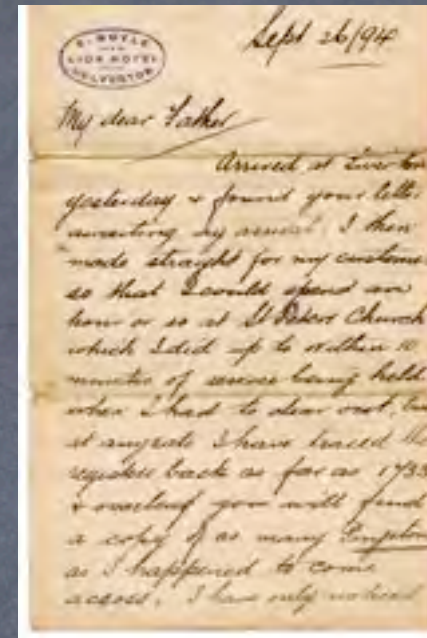 E. DOYLE
LION HOTEL
Sept 26/94
My dear Father
Arrived at Tiverton
yesterday & found your letter
awaiting my arrival. I then
made straight for my customer
so that I could spend an
hour or so at St Peters Church
which I did up to within 10
minutes of service being held
when I had to clear out, but
at anyrate I have traced the
register back as far as 1733
& overleaf you will find
a copy of as many
as I happened to come
across. I have only noticed